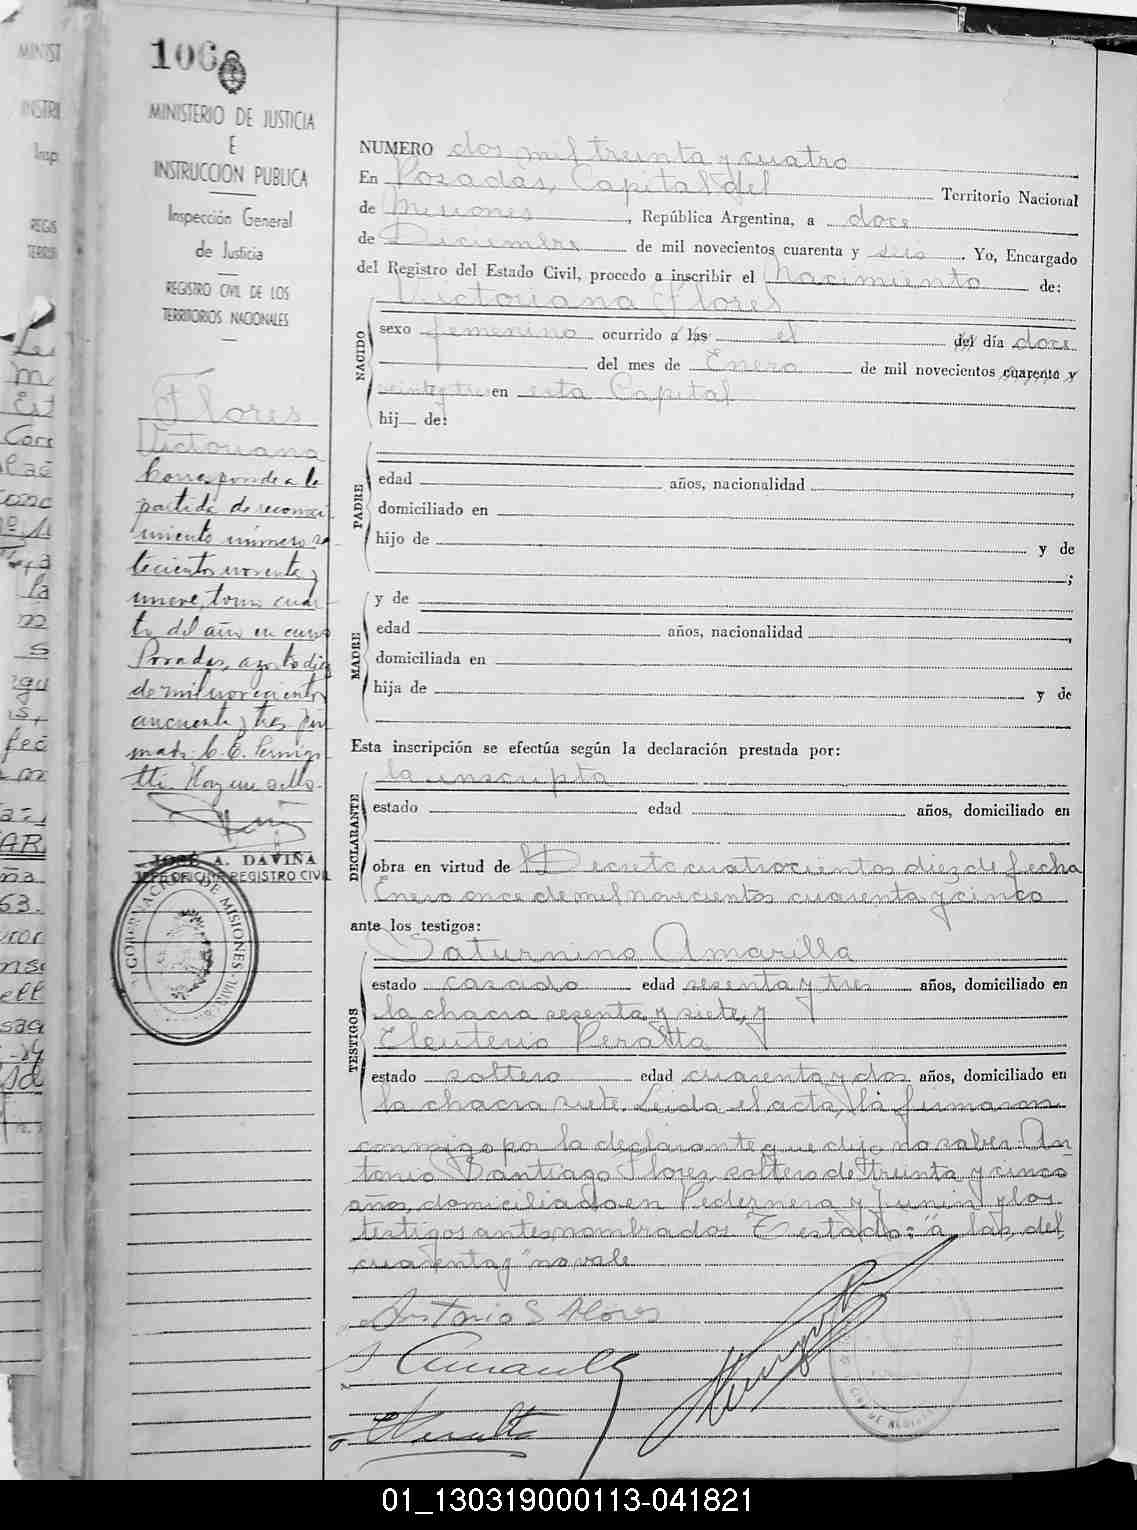 106
MINISTERIO DE JUSTICIA
E
INSTRUCCION PUBLICA
Inspección General
de Justicia
REGISTRO CIVIL DE LOS
TERRITORIOS NACIONALES
Flores
Victoriana
Corresponde a la
partida de reconoci
miento número se
tecientos noventa y
nueve, tomo cuar
to del año en curso
Posadas, agosto diez
de mil novecientos
cincuenta y tres fir
mado: C. E.
Hay un sello.
JOSÉ A. DAVIÑA
JEFE OFICINA REGISTRO CIVIL
GOBERNACION DE MISIONES
NUMERO dos mil treinta y cuatro
En Posadas, Capital del Territorio Nacional
de Misiones, República Argentina, a doce
de Diciembre de mil novecientos cuarenta y seis. Yo, Encargado
del Registro del Estado Civil, procedo a inscribir el Nacimiento de:
Victoriana Flores
NACIDO
sexo femenino ocurrido a las el del día doce
del mes de Enero de mil novecientos cuarenta y
veintytres en esta Capital
hij de:
PADRE
edad años, nacionalidad
domiciliado en
hijo de y de
;
MADRE
y de
edad años, nacionalidad
domiciliada en
hija de y de
Esta inscripción se efectúa según la declaración prestada por:
DECLARANTE
la inscripta
estado edad años, domiciliado en
obra en virtud de Decreto cuatrocientos diez de fecha
Enero once de mil novecientos cuarenta y cinco
ante los testigos:
TESTIGOS
Saturnino Amarilla
estado casado edad sesenta y tres años, domiciliado en
la chacra sesenta y siete, y
Eleuterio Peralta
estado soltero edad cuarenta y dos años, domiciliado en
la chacra siete. Leida el acta, la firmaron
conmigo por la declarante que dijo no saber An
tonio Santiago Flores, soltero de treinta y cinco
años, domiciliado en Pedernera y Junin y los
testigos antes nombrados Testado: "a las, del,
cuarenta y" no vale
Antonio S Flores
S Amarilla
E Peralta
01_130319000113-041821